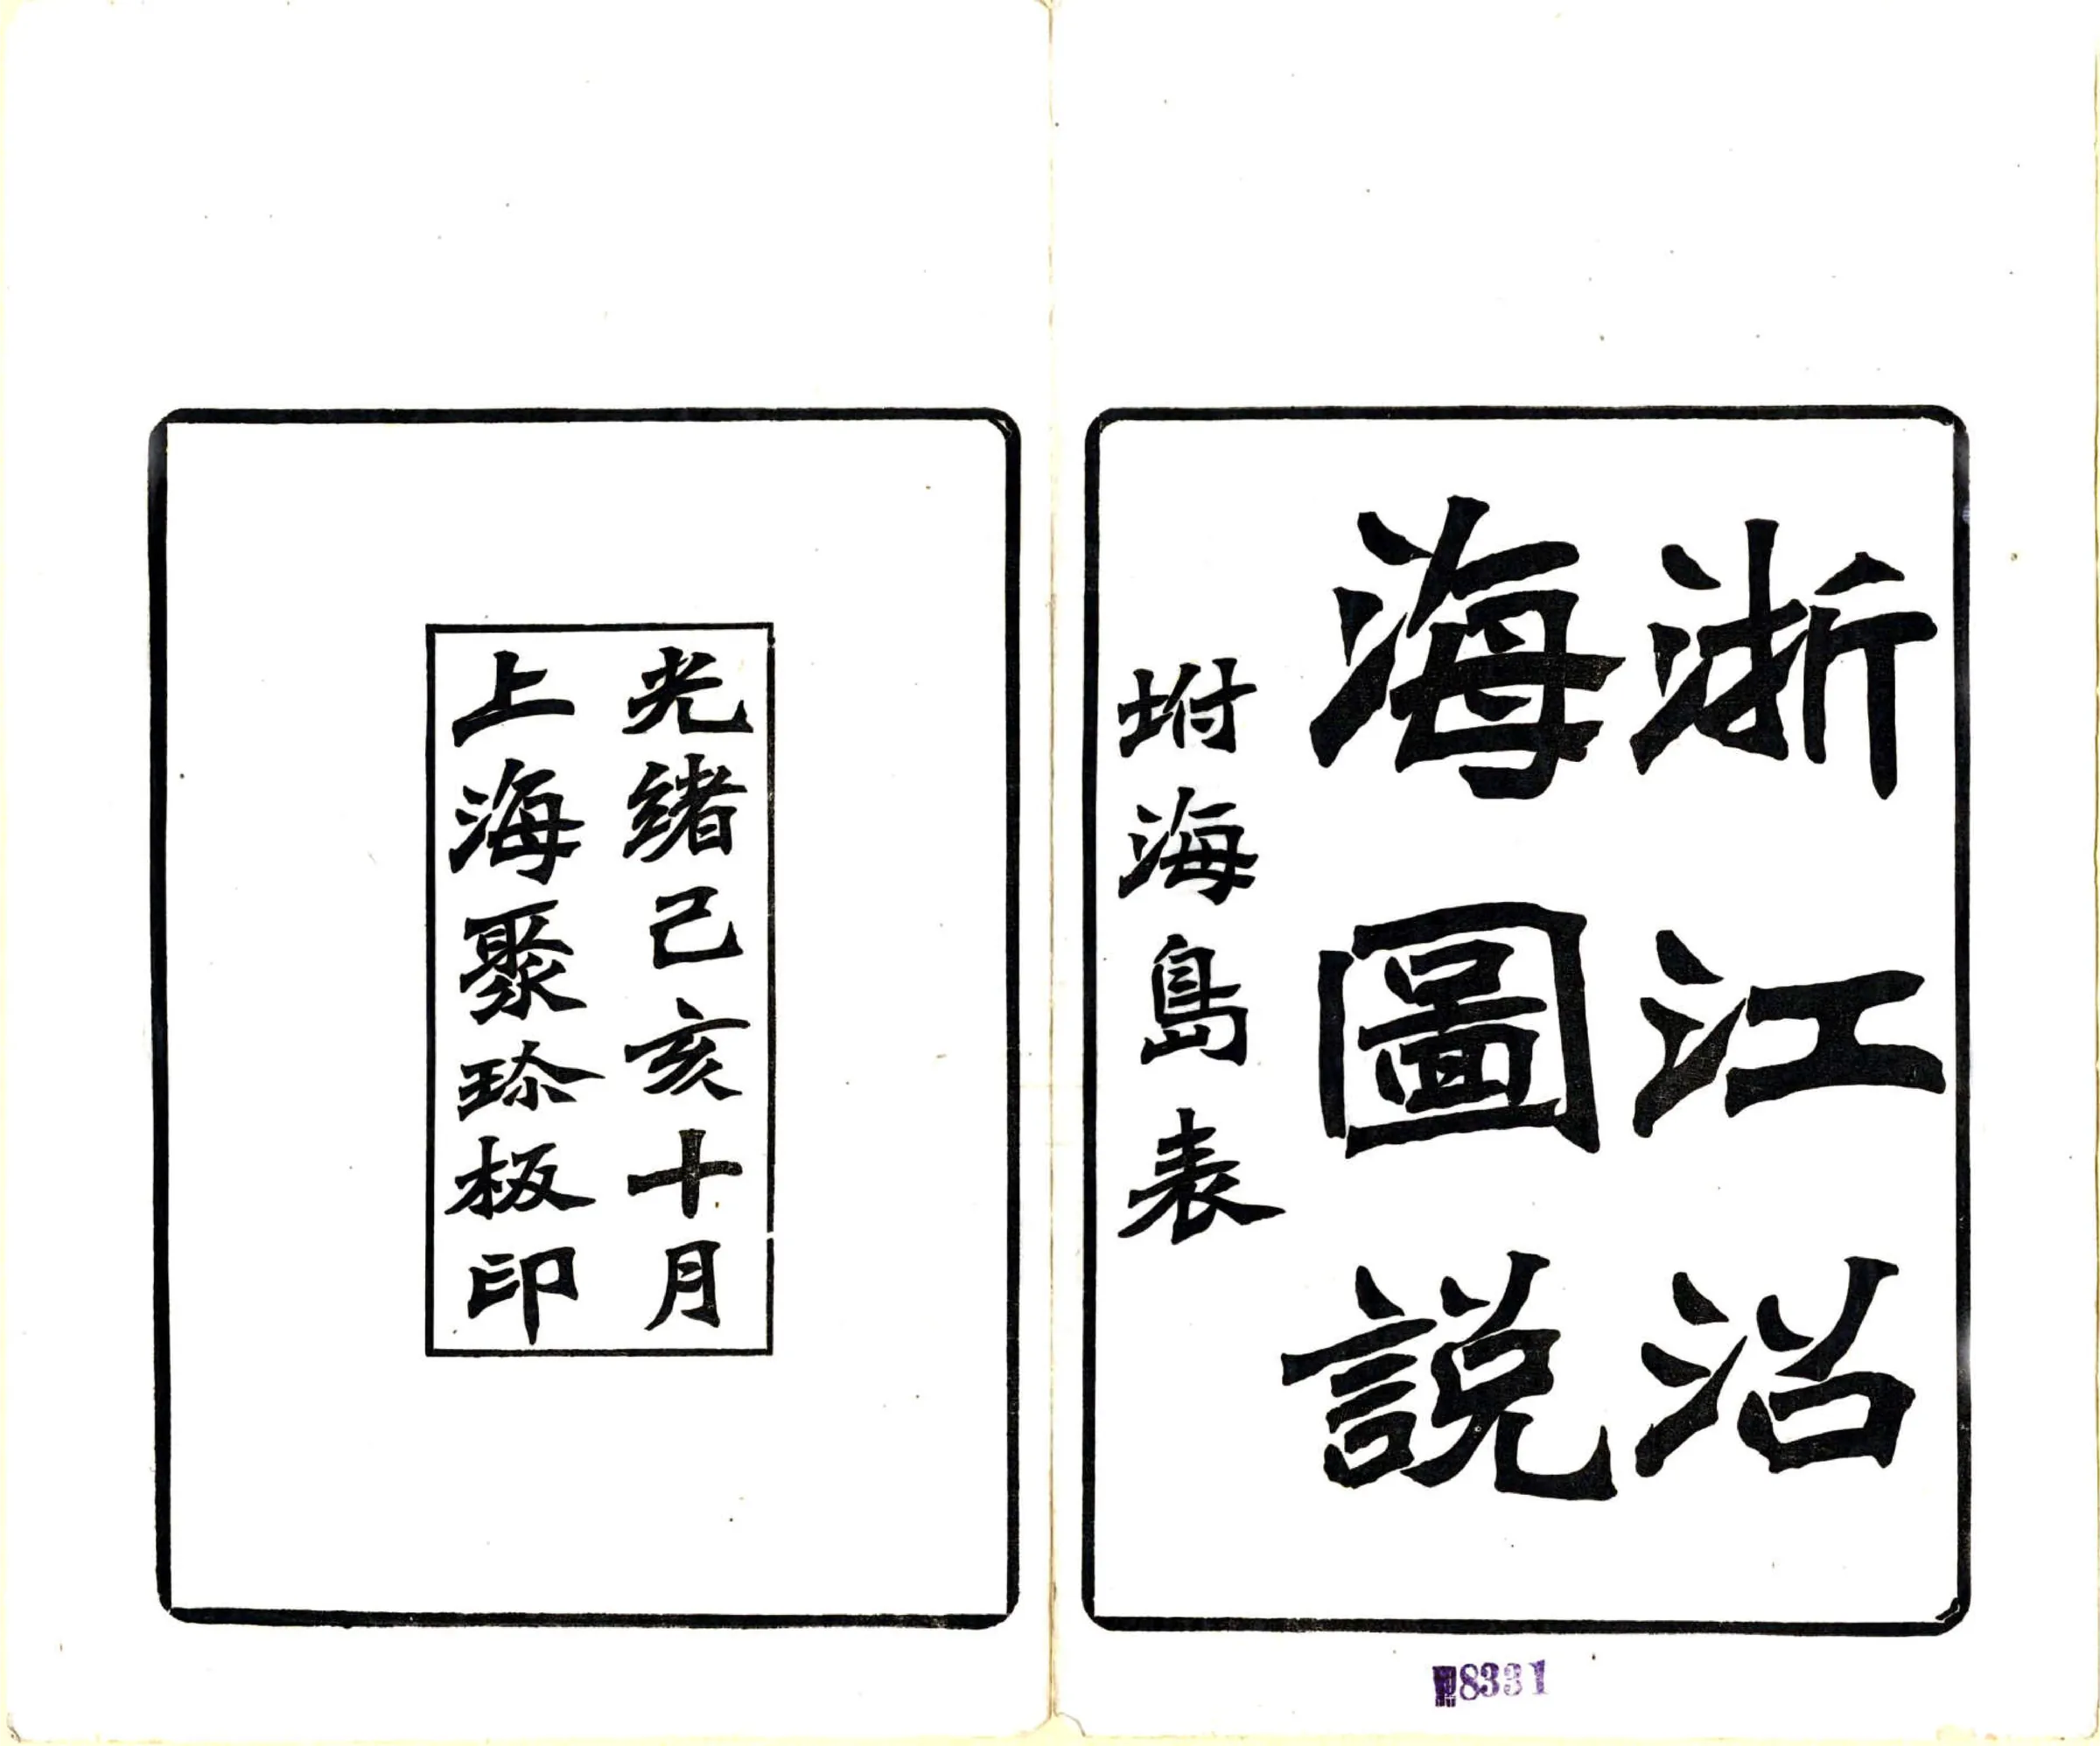 浙江沿
海圖說
坿海島表
光緒己亥十月
上海聚珍板印
8331